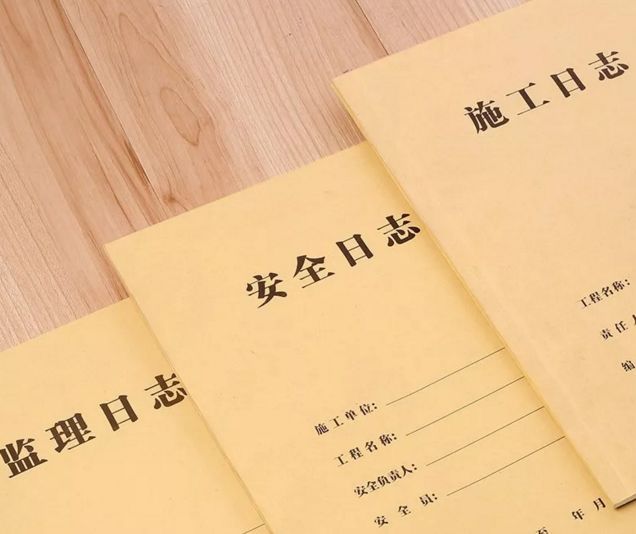 施工日志
工程名称：
责任人
编
安全日志
施工单位：
工程名称：
安全负责人：
安全员：
至 年 月
监理日志